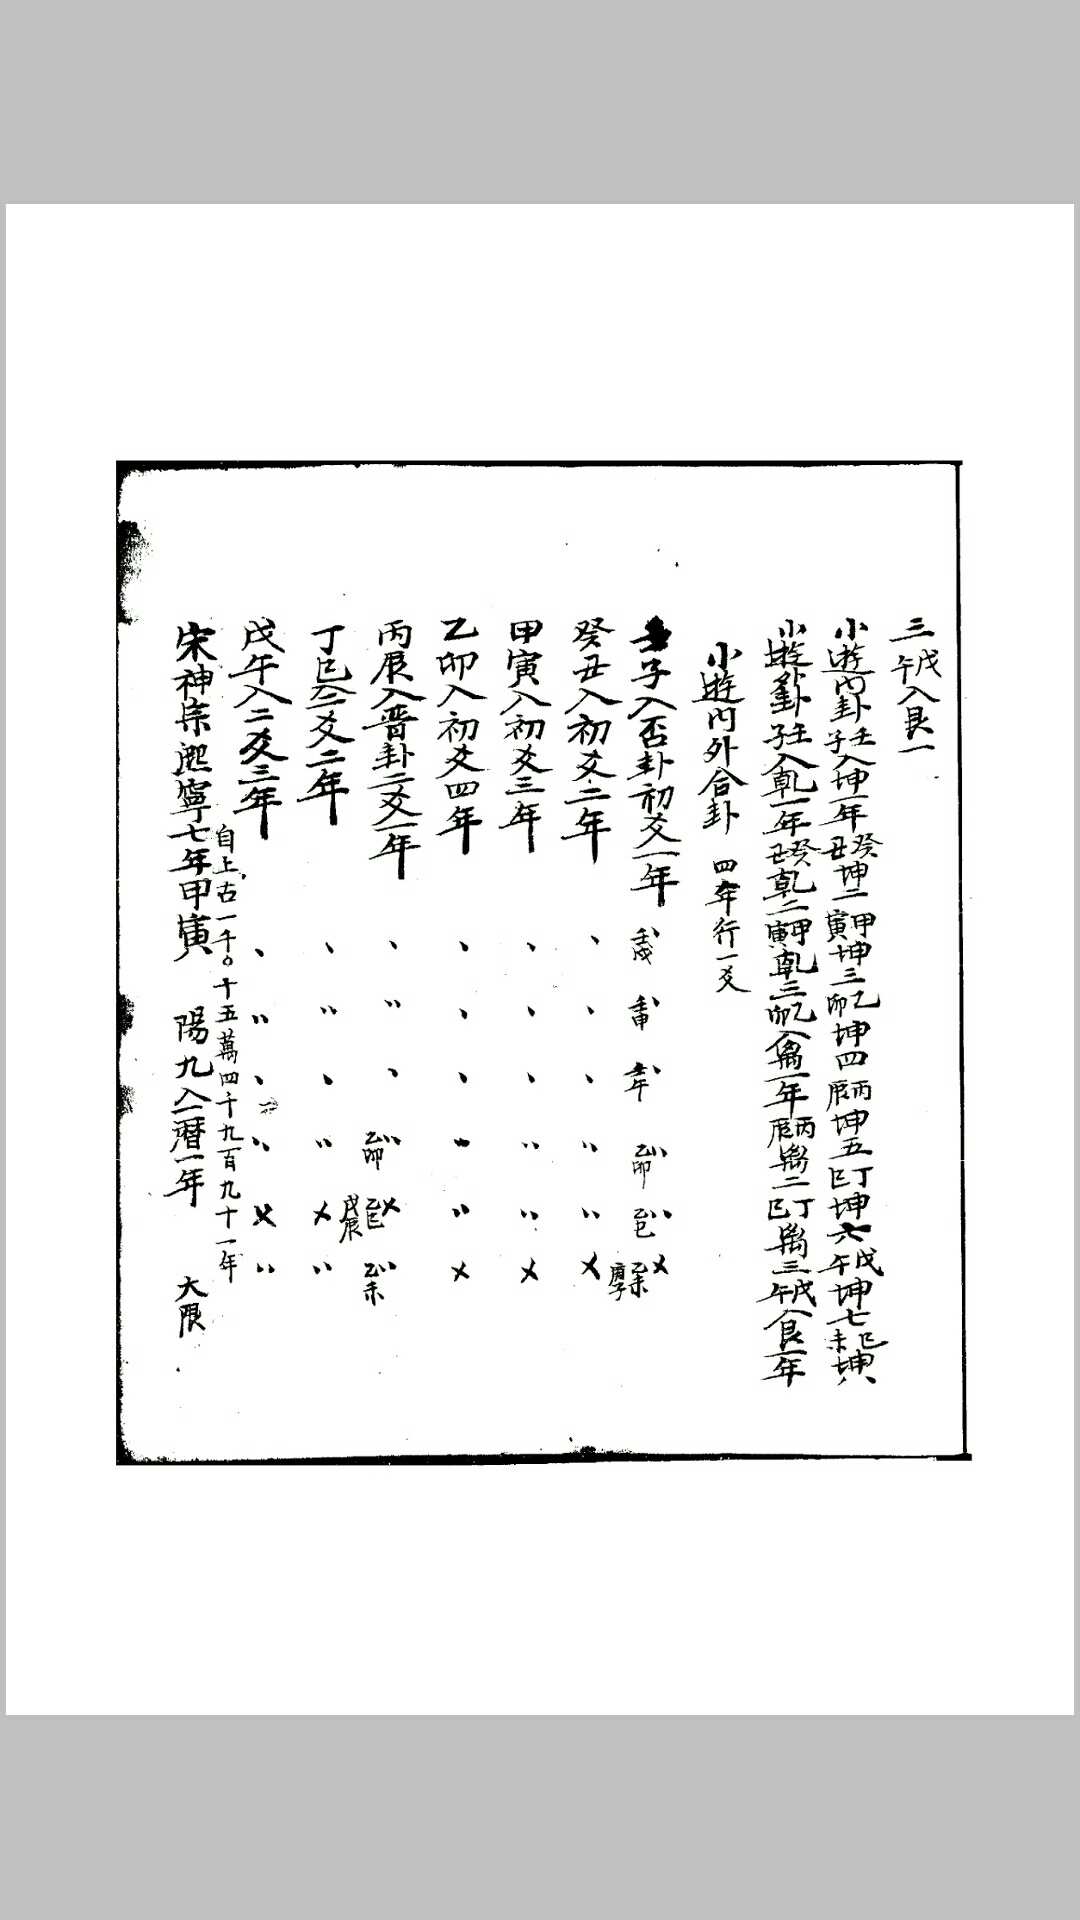 三戊午入艮一
小遊内卦壬子入坤一年癸丑坤二甲寅坤三乙卯坤四丙辰坤五丁巳坤六戊午坤七己未坤八
小遊外卦壬子入乾一年癸丑乾二甲寅乾三乙卯入离一年丙辰离二丁巳离三戊午入艮一年
小遊内外合卦 四年行一爻
壬子入否卦初爻一年 壬戌 壬申 壬午 乙卯 乙巳 乙未 庚子
癸丑入初爻二年
甲寅入初爻三年
乙卯入初爻四年
丙辰入晋卦二爻一年 乙卯 乙巳 戊辰 乙未
丁巳入二爻二年
戊午入二爻三年
自上古一千〇十五萬四千九百九十一年
宋神宗熙寧七年甲寅 陽九入一曆一年 大限